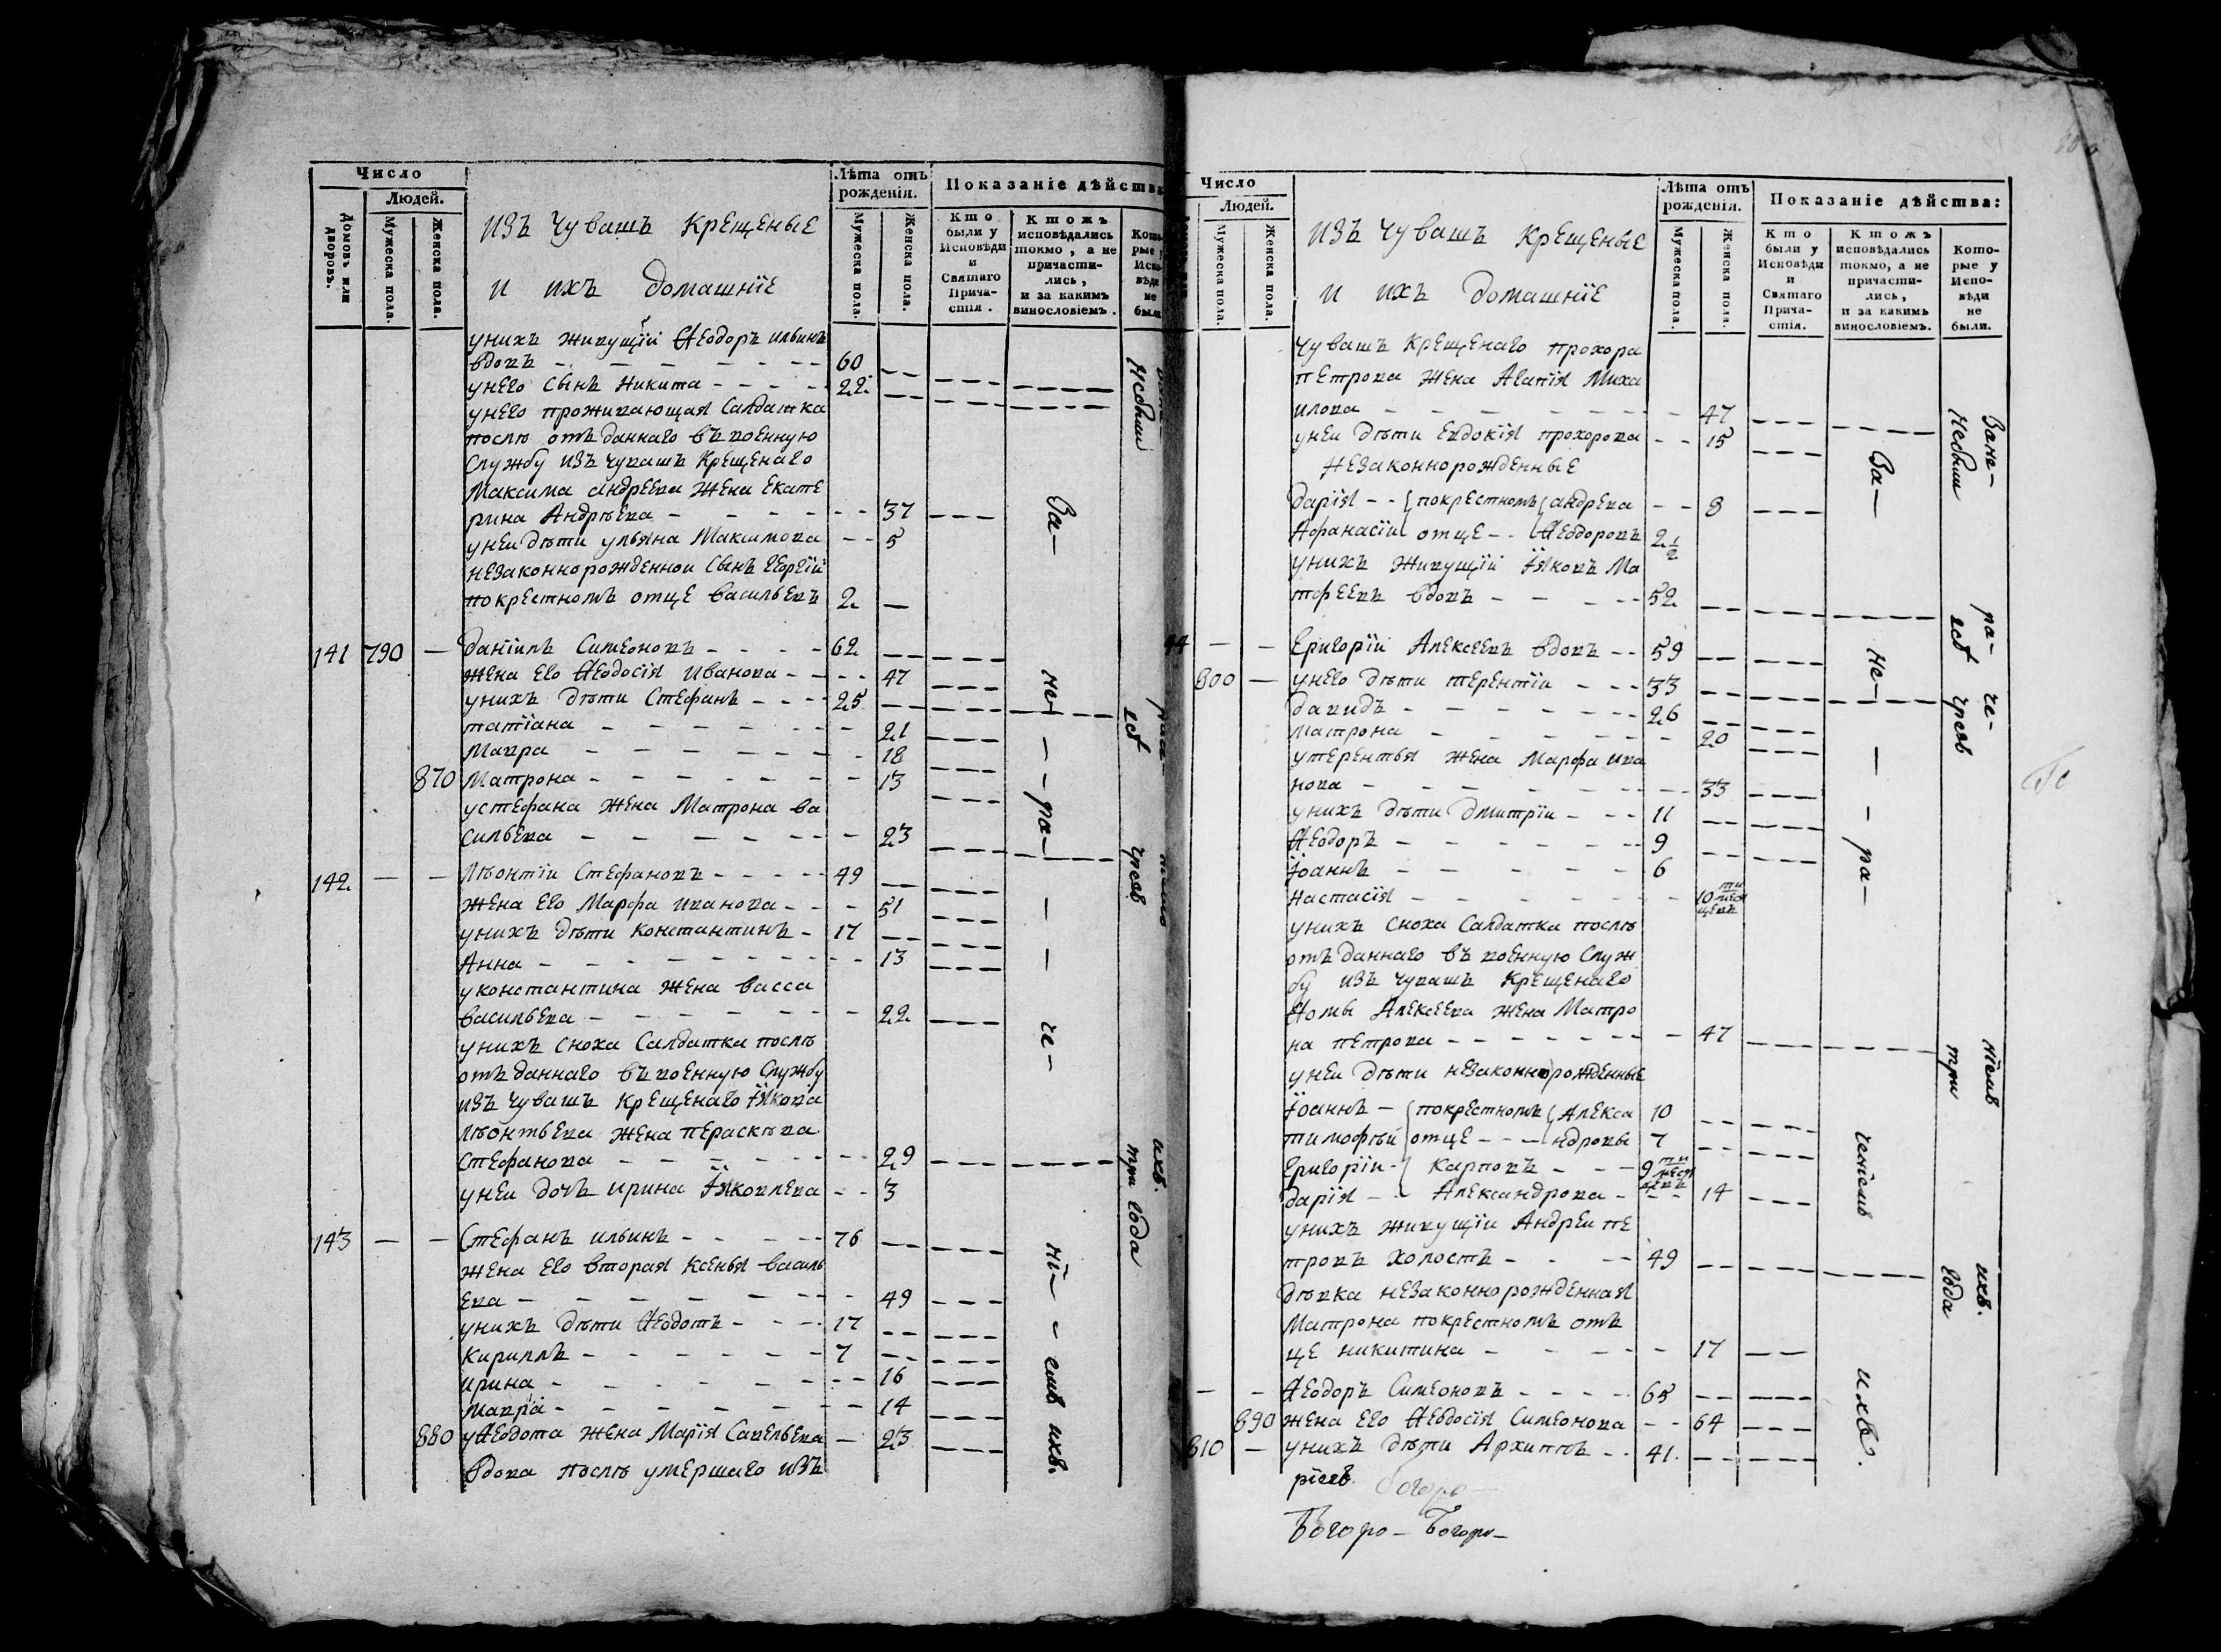 Число
Людей.
Домовъ или дворовъ.
Мужеска пола.
Женска пола.
изъ чувашъ крещеные
и ихъ домашніе
Лѣта отъ рожденія.
Мужеска пола.
Женска пола.
Показаніе дѣйства
Кто были у Исповѣди и Святаго Причастія.
Ктожъ исповѣдались токмо, а не причастились, и за какимъ винословіемъ.
унихъ живущій Ѳеодоръ ильинъ
вдовъ - - - 60
унего сынъ Никита - - - 22
унего проживающая Салдатка
послѣ отъданнаго въ военную
службу изъ чувашъ крещенаго
Максима андреева жена екате
рина Андрѣева - - - 37
унеи дѣти ульяна Максимова - - 5
незаконнорожденнои сынъ георгій
покрестномъ отце васильевъ 2 —
141 790 — даніилъ Симеоновъ - - - 62
жена его Ѳеодосія иванова - - 47
унихъ дѣти Стефанъ - - - 25
татіана - - - 21
Мавра - - - 18
870 Матрона - - - 13
устефана жена Матрона ва
сильева - - - 23
142 — — Лѣонтіи Стефановъ - - - 49
жена его Марфа иванова - - - 51
унихъ дѣти константинъ - 17
Анна - - - 13
уконстантина жена васса
васильева - - - 22
унихъ сноха Салдатка послѣ
отъданнаго въ военную службу
изъ чувашъ крещенаго Іякова
лѣонтьева жена пераскѣва
стефанова - - - 29
унеи дочь ирина Іяковлева - - 3
143 — — Стефанъ ильинъ - - - 76
жена его вторая ксенья василь
ева - - - 49
унихъ дѣти Ѳеодотъ - - - 17
кириллъ - - - 7
ирина - - - 16
мавра - - - 14
880 уѲеодота жена Марія Савельева — 23
вдова послѣ умершаго изъ
За— не— ра— че— ні— емъ ихъ.
Небыли
три года
Число
Людей.
Мужеска пола.
Женска пола.
изъ чувашъ крещеные
и ихъ домашніе
Лѣта отъ рожденія.
Мужеска пола.
Женска пола.
Показаніе дѣйства:
Кто были у Исповѣди и Святаго Причастія.
Ктожъ исповѣдались токмо, а не причастились, и за какимъ винословіемъ.
Которые у Исповѣди не были.
чувашъ крещенаго прохора
петрова жена Агапія Миха
илова - - - 47
унеи дѣти евдокія прохорова - - 15
незаконнорожденные
дарія - - покрестномъ андреева - - 8
Афанасіи отце - - Ѳеодоровъ 2 1/2
унихъ живущіи Іяковъ Ма
тфеевъ вдовъ - - - 52
44 — — григоріи Алексеевъ вдовъ - - 59
800 — унего дѣти терентіи - - - 33
давидъ - - - 26
матрона - - - 20
утерентья жена Марфа ива
нова - - - 33
унихъ дѣти дмитріи - - - 11
Ѳеодоръ - - - 9
Іоаннъ - - - 6
настасія - - - 10 ти месяцевъ
унихъ сноха салдатка послѣ
отъданнаго въ военную служ
бу изъ чувашъ крещенаго
Ѳомы Алексеева жена Матро
на петрова - - - 47
унеи дѣти незаконнорожденные
Іоаннъ — покрестномъ Алекса 10
тимофѣй отце - - - ндровы 7
григоріи - карповъ - - - 9 ти месяцевъ
дарія - - Александрова - - - 14
унихъ живущіи Андреи пе
тровъ холостъ - - - 49
дѣвка незаконнорожденная
Матрона покрестномъ отъ
це никитина - - - 17
— — Ѳеодоръ Симеоновъ - - - 65
890 жена его Ѳеодосія Симеонова - - 64
810 — унихъ дѣти Архиппъ - - 41
За— не— ра— ченіемъ ихъ.
Зане— ра— че— ніемъ ихъ.
Небыли
три года
Богоро— Богоро—